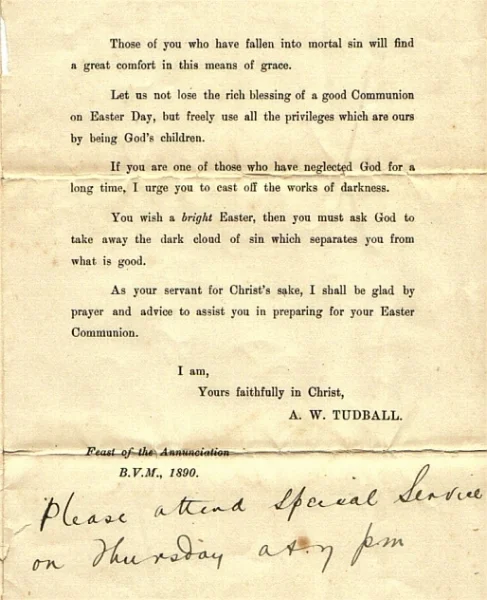 Those of you who have fallen into mortal sin will find
a great comfort in this means of grace.
Let us not lose the rich blessing of a good Communion
on Easter Day, but freely use all the privileges which are ours
by being God's children.
If you are one of those who have neglected God for a
long time, I urge you to cast off the works of darkness.
You wish a bright Easter, then you must ask God to
take away the dark cloud of sin which separates you from
what is good.
As your servant for Christ's sake, I shall be glad by
prayer and advice to assist you in preparing for your Easter
Communion.
I am,
Yours faithfully in Christ,
A. W. TUDBALL.
Feast of the Annunciation
B.V.M., 1890.
Please attend special Service
on Thursday at 7 pm